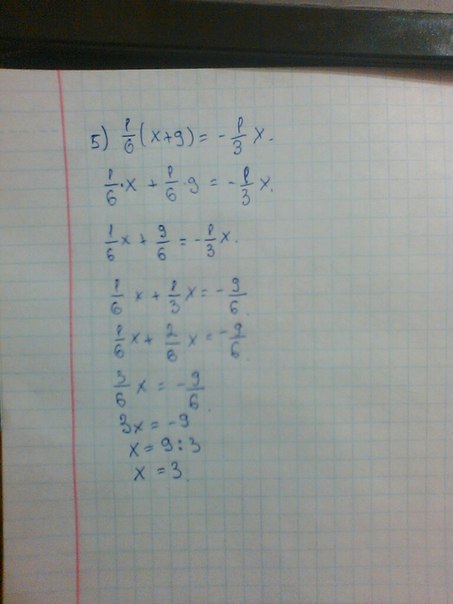 5) 1/6 (x+9) = - 1/3 x.
1/6 · x + 1/6 · 9 = - 1/3 x.
1/6 x + 9/6 = - 1/3 x.
1/6 x + 1/3 x = - 9/6.
1/6 x + 2/6 x = - 9/6.
3/6 x = - 9/6.
3x = -9
x = 9 : 3
x = 3.